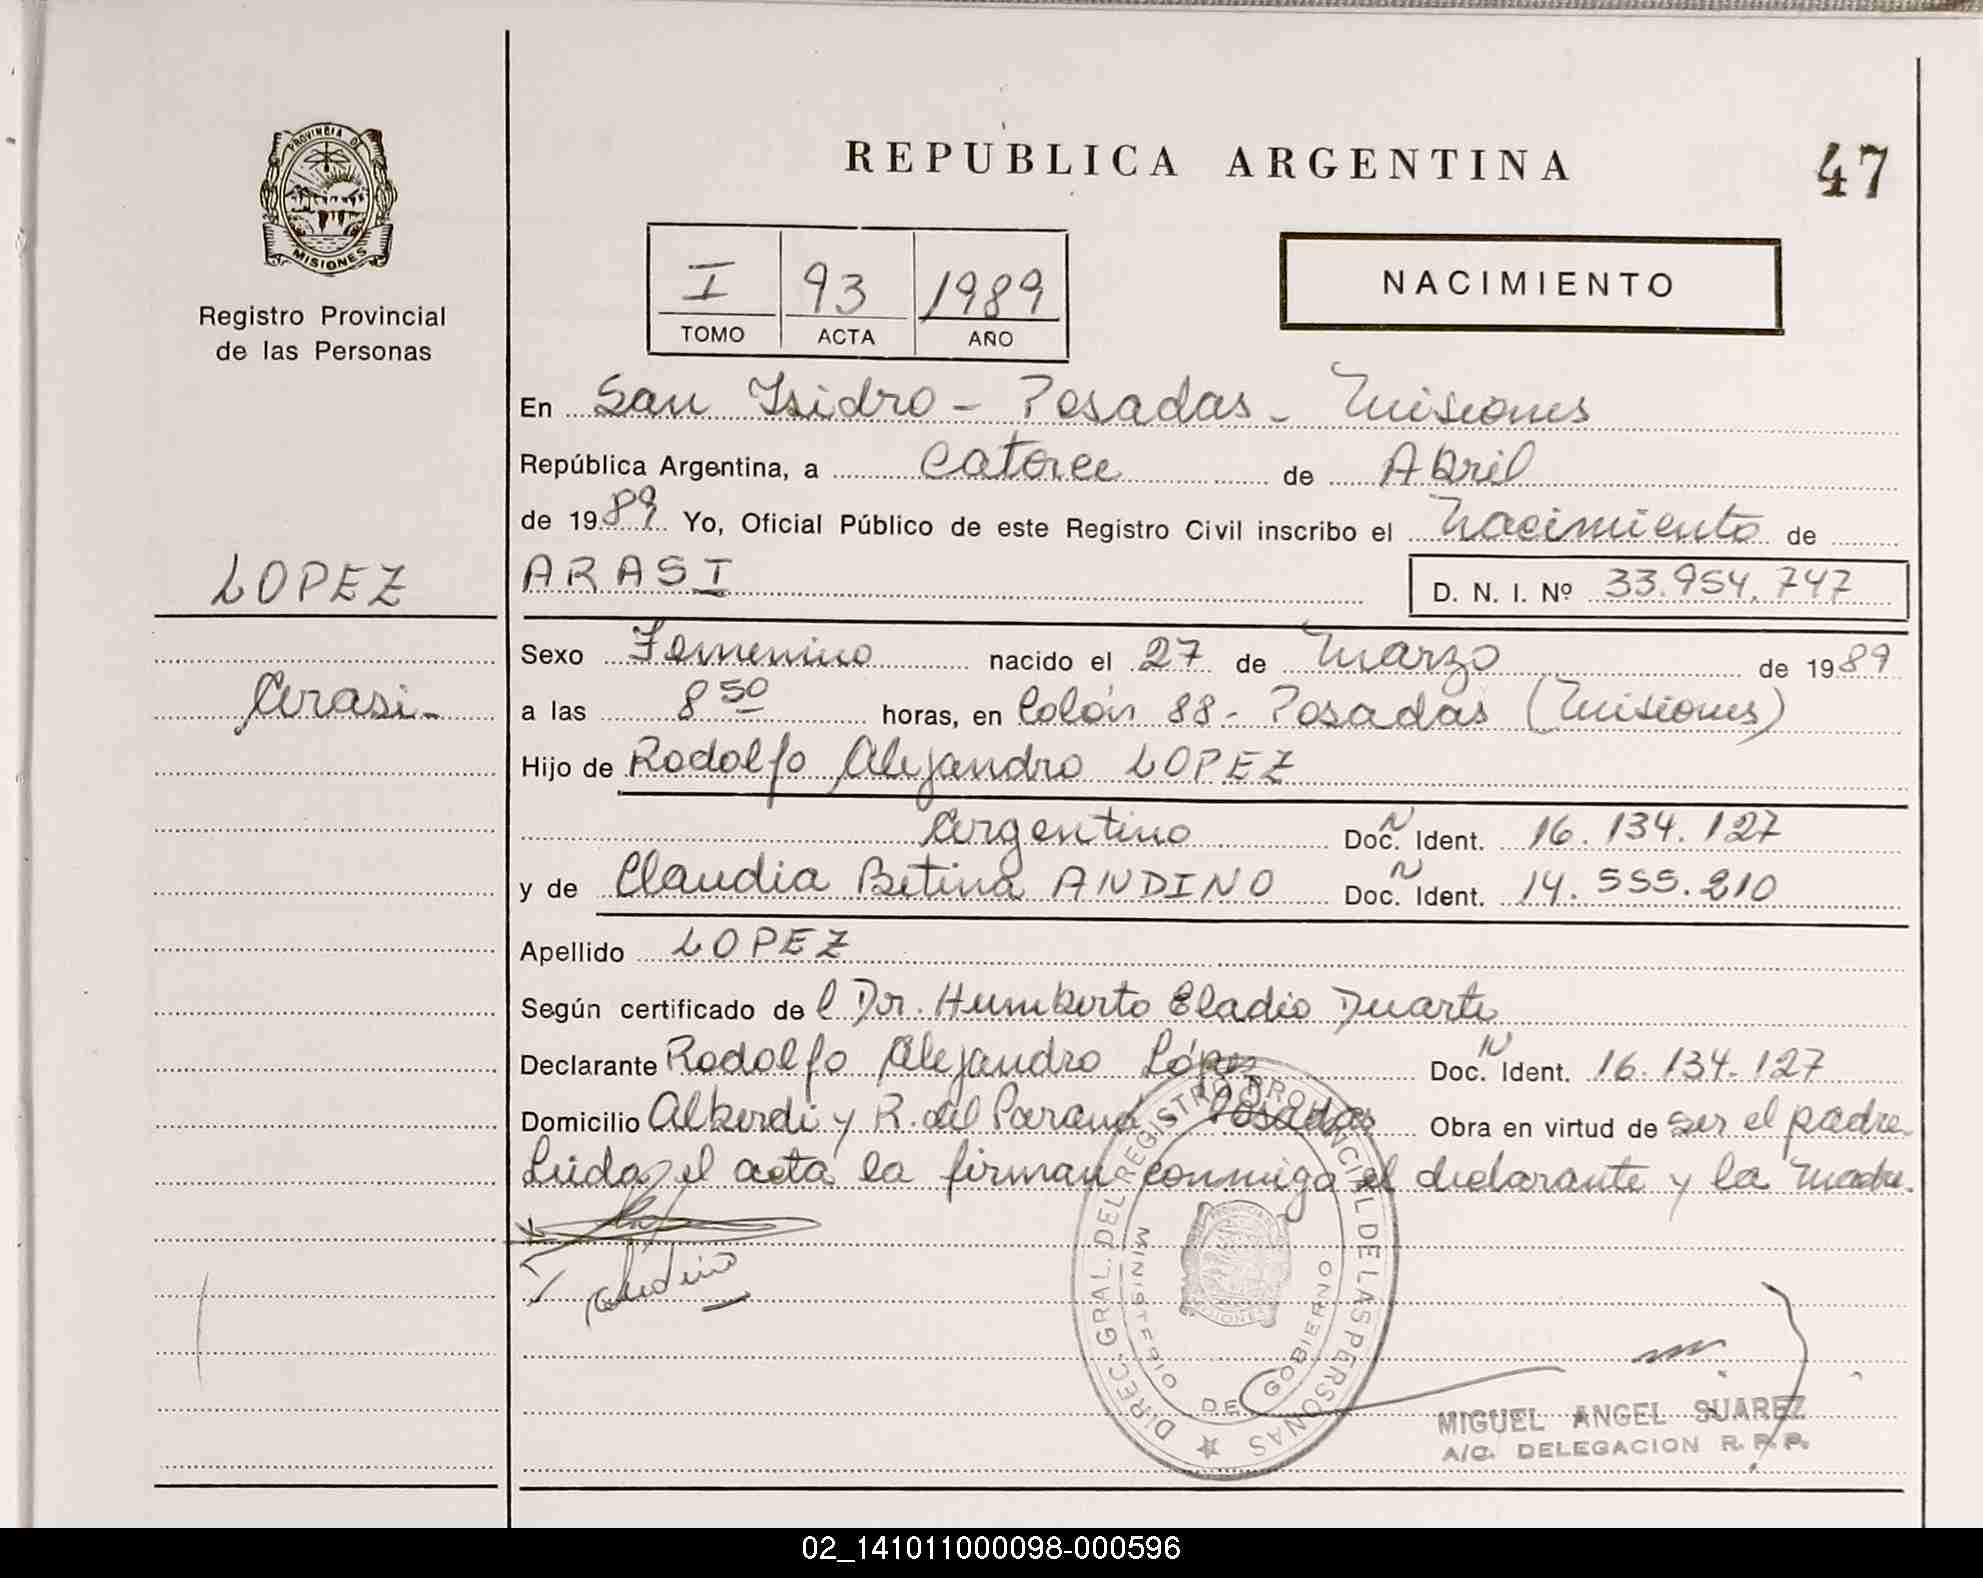 REPUBLICA ARGENTINA
47
PROVINCIA DE
MISIONES
Registro Provincial
de las Personas
I 93 1989
TOMO ACTA AÑO
NACIMIENTO
En San Isidro - Posadas - Misiones
República Argentina, a Catorce de Abril
de 1989 Yo, Oficial Público de este Registro Civil inscribo el Nacimiento de
LOPEZ
ARASI
D. N. I. Nº 33.954.747
Sexo Femenino nacido el 27 de Marzo de 1989
Arasi-
a las 8 50 horas, en Colón 88 - Posadas (Misiones)
Hijo de Rodolfo Alejandro LOPEZ
Argentino Doc. N Ident. 16.134.127
y de Claudia Betina ANDINO Doc. N Ident. 14.555.210
Apellido LOPEZ
Según certificado del Dr. Humberto Eladio Duarte
Declarante Rodolfo Alejandro López Doc. N Ident. 16.134.127
Domicilio Alberdi y R. del Paraná Posadas Obra en virtud de ser el padre.
Leida el acta la firman conmigo el declarante y la madre.
DIREC. GRAL. DEL REGISTRO PROVINCIAL DE LAS PERSONAS
MINISTERIO DE GOBIERNO
MIGUEL ANGEL SUAREZ
A/C. DELEGACION R. P. P.
02_141011000098-000596